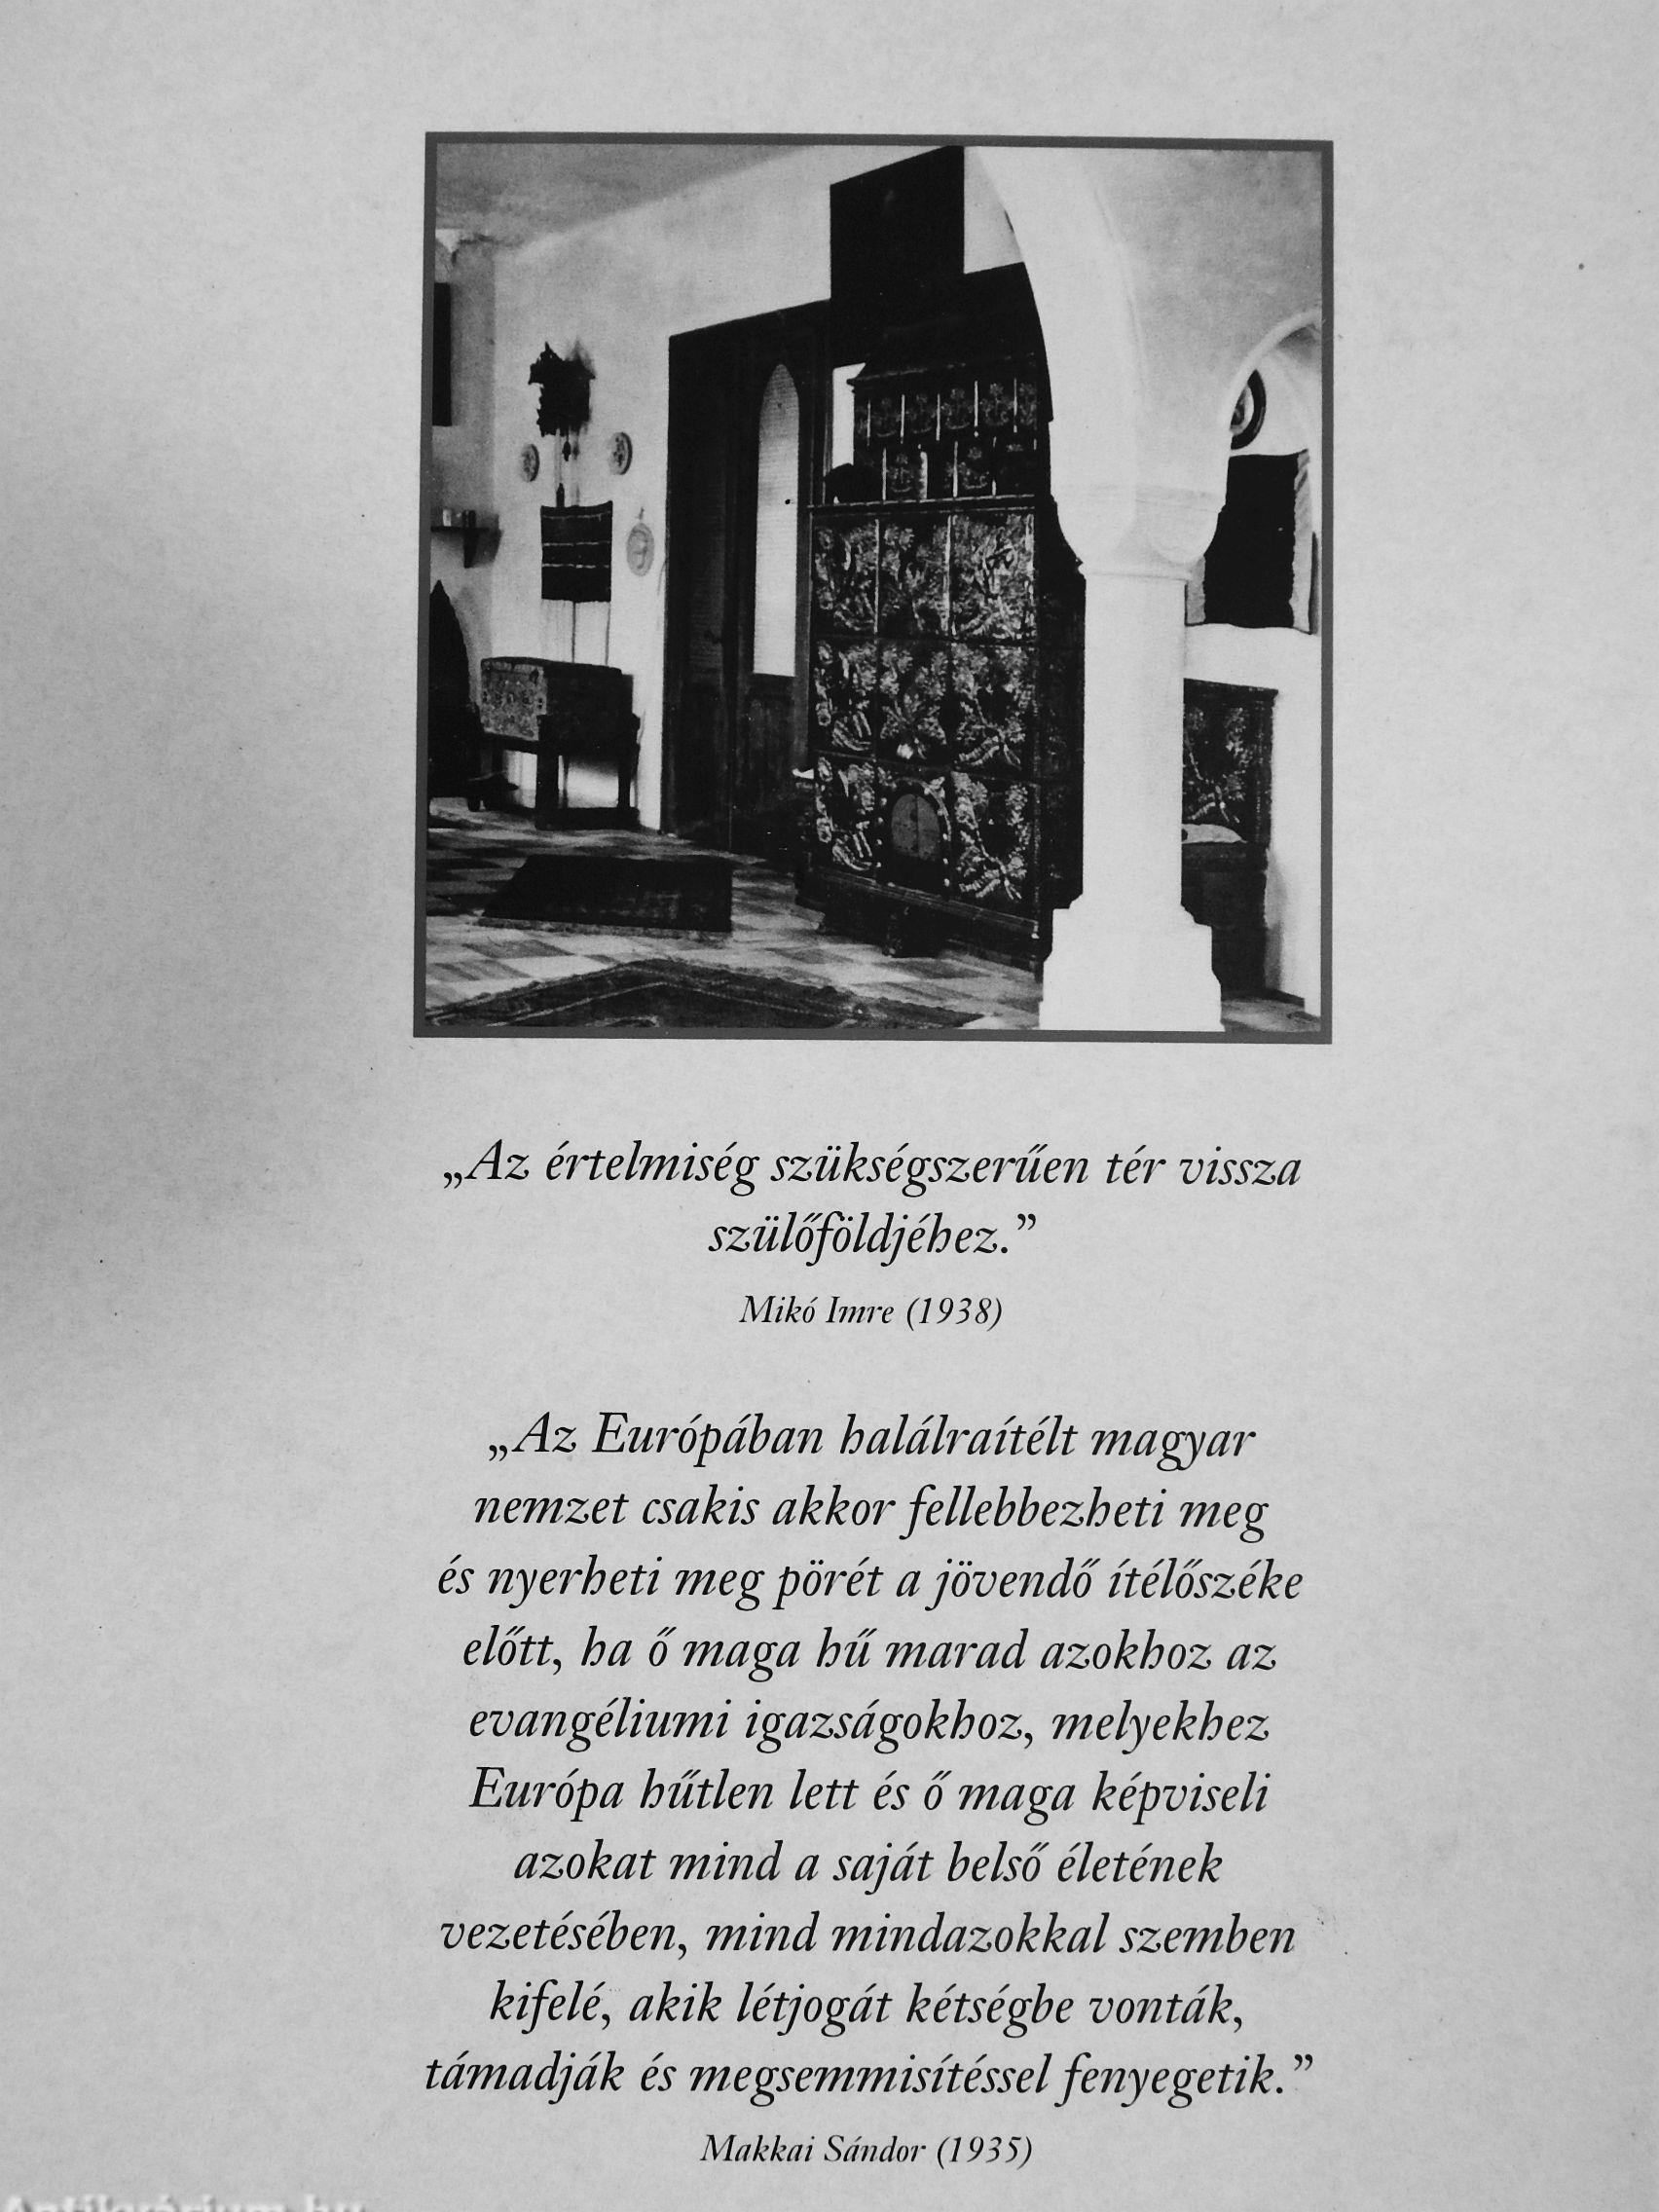 „Az értelmiség szükségszerűen tér vissza
szülőföldjéhez.”
Mikó Imre (1938)
„Az Európában halálraítélt magyar
nemzet csakis akkor fellebbezheti meg
és nyerheti meg pörét a jövendő ítélőszéke
előtt, ha ő maga hű marad azokhoz az
evangéliumi igazságokhoz, melyekhez
Európa hűtlen lett és ő maga képviseli
azokat mind a saját belső életének
vezetésében, mind mindazokkal szemben
kifelé, akik létjogát kétségbe vonták,
támadják és megsemmisítéssel fenyegetik.”
Makkai Sándor (1935)
Antikvárium.hu